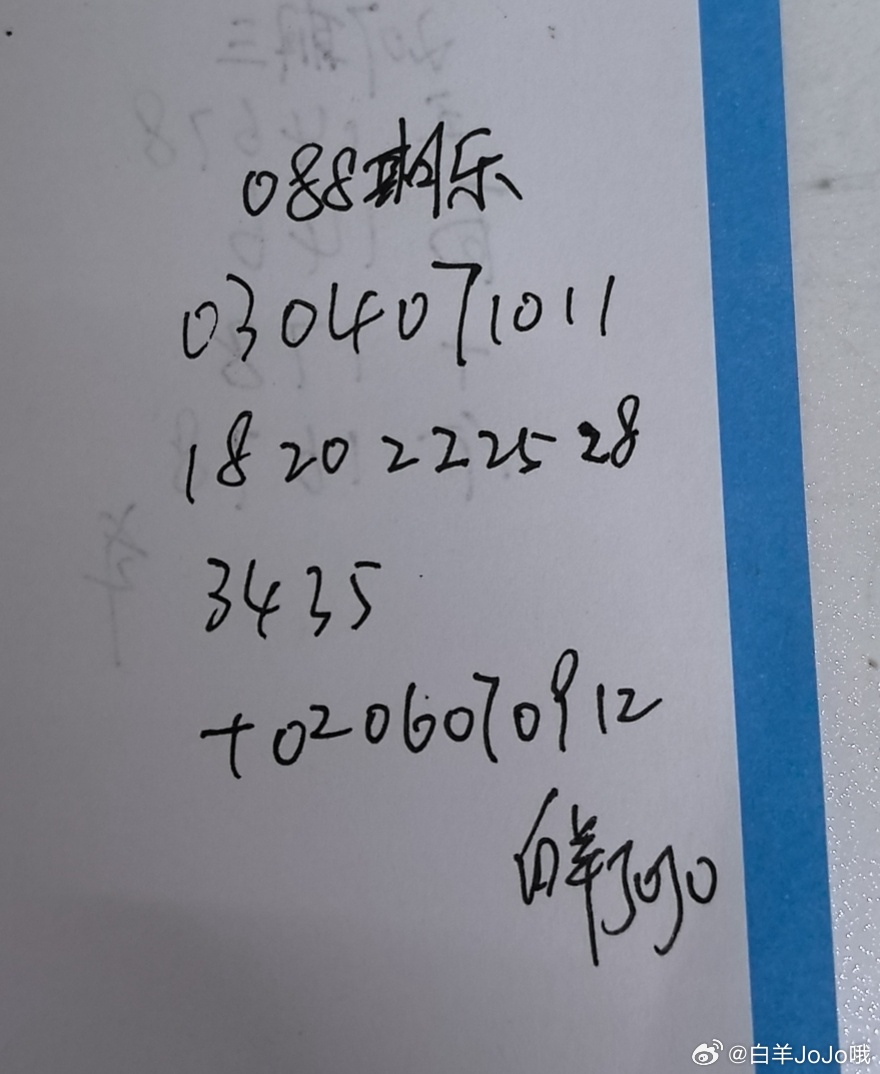 088期乐
0304071011
1820222528
3435
+0206070912
白羊JOJO
@白羊JoJo哦